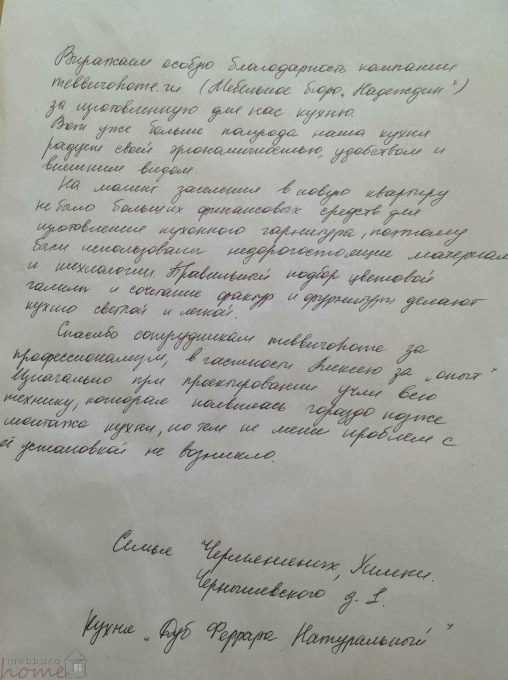 Выражаем особую благодарность компании
меббигоноте.ru (Мебельное бюро „Надеждин")
за изготовленную для нас кухню.
Вот уже больше полугода наша кухня
радует своей эргономичностью, удобством и
внешним видом.
На момент заселения в новую квартиру
не было больших финансовых средств для
изготовления кухонного гарнитура, поэтому
были использованы недорогостоящие материалы
и технологии. Правильный подбор цветовой
гаммы и сочетание фактур и фурнитуры делают
кухню светлой и легкой.
Спасибо сотрудникам за
профессионализм, в частности Алексею за „опыт"
Изначально при проектировании учли всю
технику, которая появилась гораздо позже
монтажа кухни, но тем не мене проблем с
её установкой не возникло.
Семья Химки.
Чернышевского д. 1.
Кухня „Дуб Феррара Натуральный"
mebburo
home